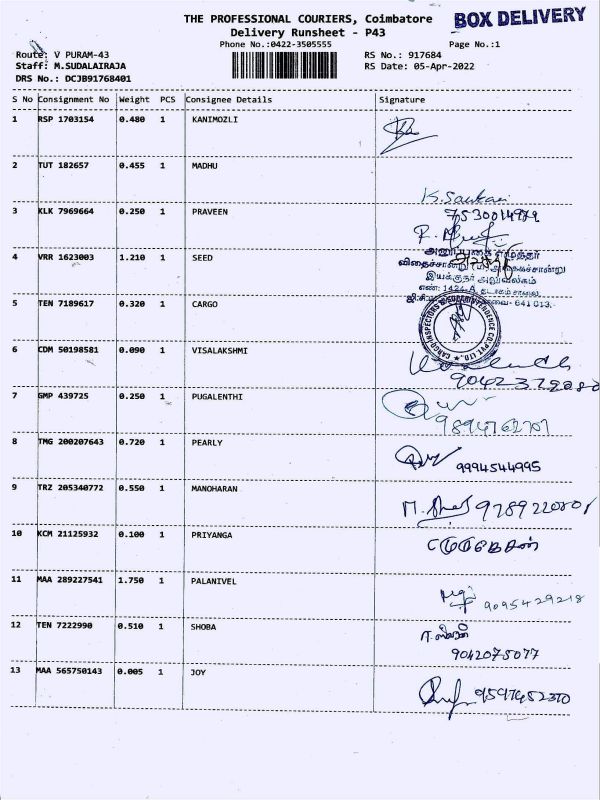 THE PROFESSIONAL COURIERS, Coimbatore
BOX DELIVERY
Delivery Runsheet - P43
Phone No.:0422-3505555
Page No.:1
Route: V PURAM-43
RS No.: 917684
Staff: M.SUDALAIRAJA
RS Date: 05-Apr-2022
DRS No.: DCJB91768401
S No Consignment No Weight PCS Consignee Details Signature
1 RSP 1703154 0.480 1 KANIMOZLI
2 TUT 182657 0.455 1 MADHU
K. Sankari
7530014979
3 KLK 7969664 0.250 1 PRAVEEN
அனுப்புகை எழுத்தர்
4 VRR 1623003 1.210 1 SEED
விதைச்சான்று
இயக்குநர் அலுவலகம்
எண்: 1424-A, தடாகம் சாலை,
641 013.
5 TEN 7189617 0.320 1 CARGO
CARGO INSPECTORS & SUPERINTENDENCE CO. PVT. LTD.
6 CDM 50198581 0.090 1 VISALAKSHMI
7 GMP 439725 0.250 1 PUGALENTHI
9894762707
8 TMG 200207643 0.720 1 PEARLY
9994544995
9 TRZ 205340772 0.550 1 MANOHARAN
9789220801
10 KCM 21125932 0.100 1 PRIYANGA
11 MAA 289227541 1.750 1 PALANIVEL
9095429218
12 TEN 7222990 0.510 1 SHOBA
9042075077
13 MAA 565750143 0.005 1 JOY
9597452370